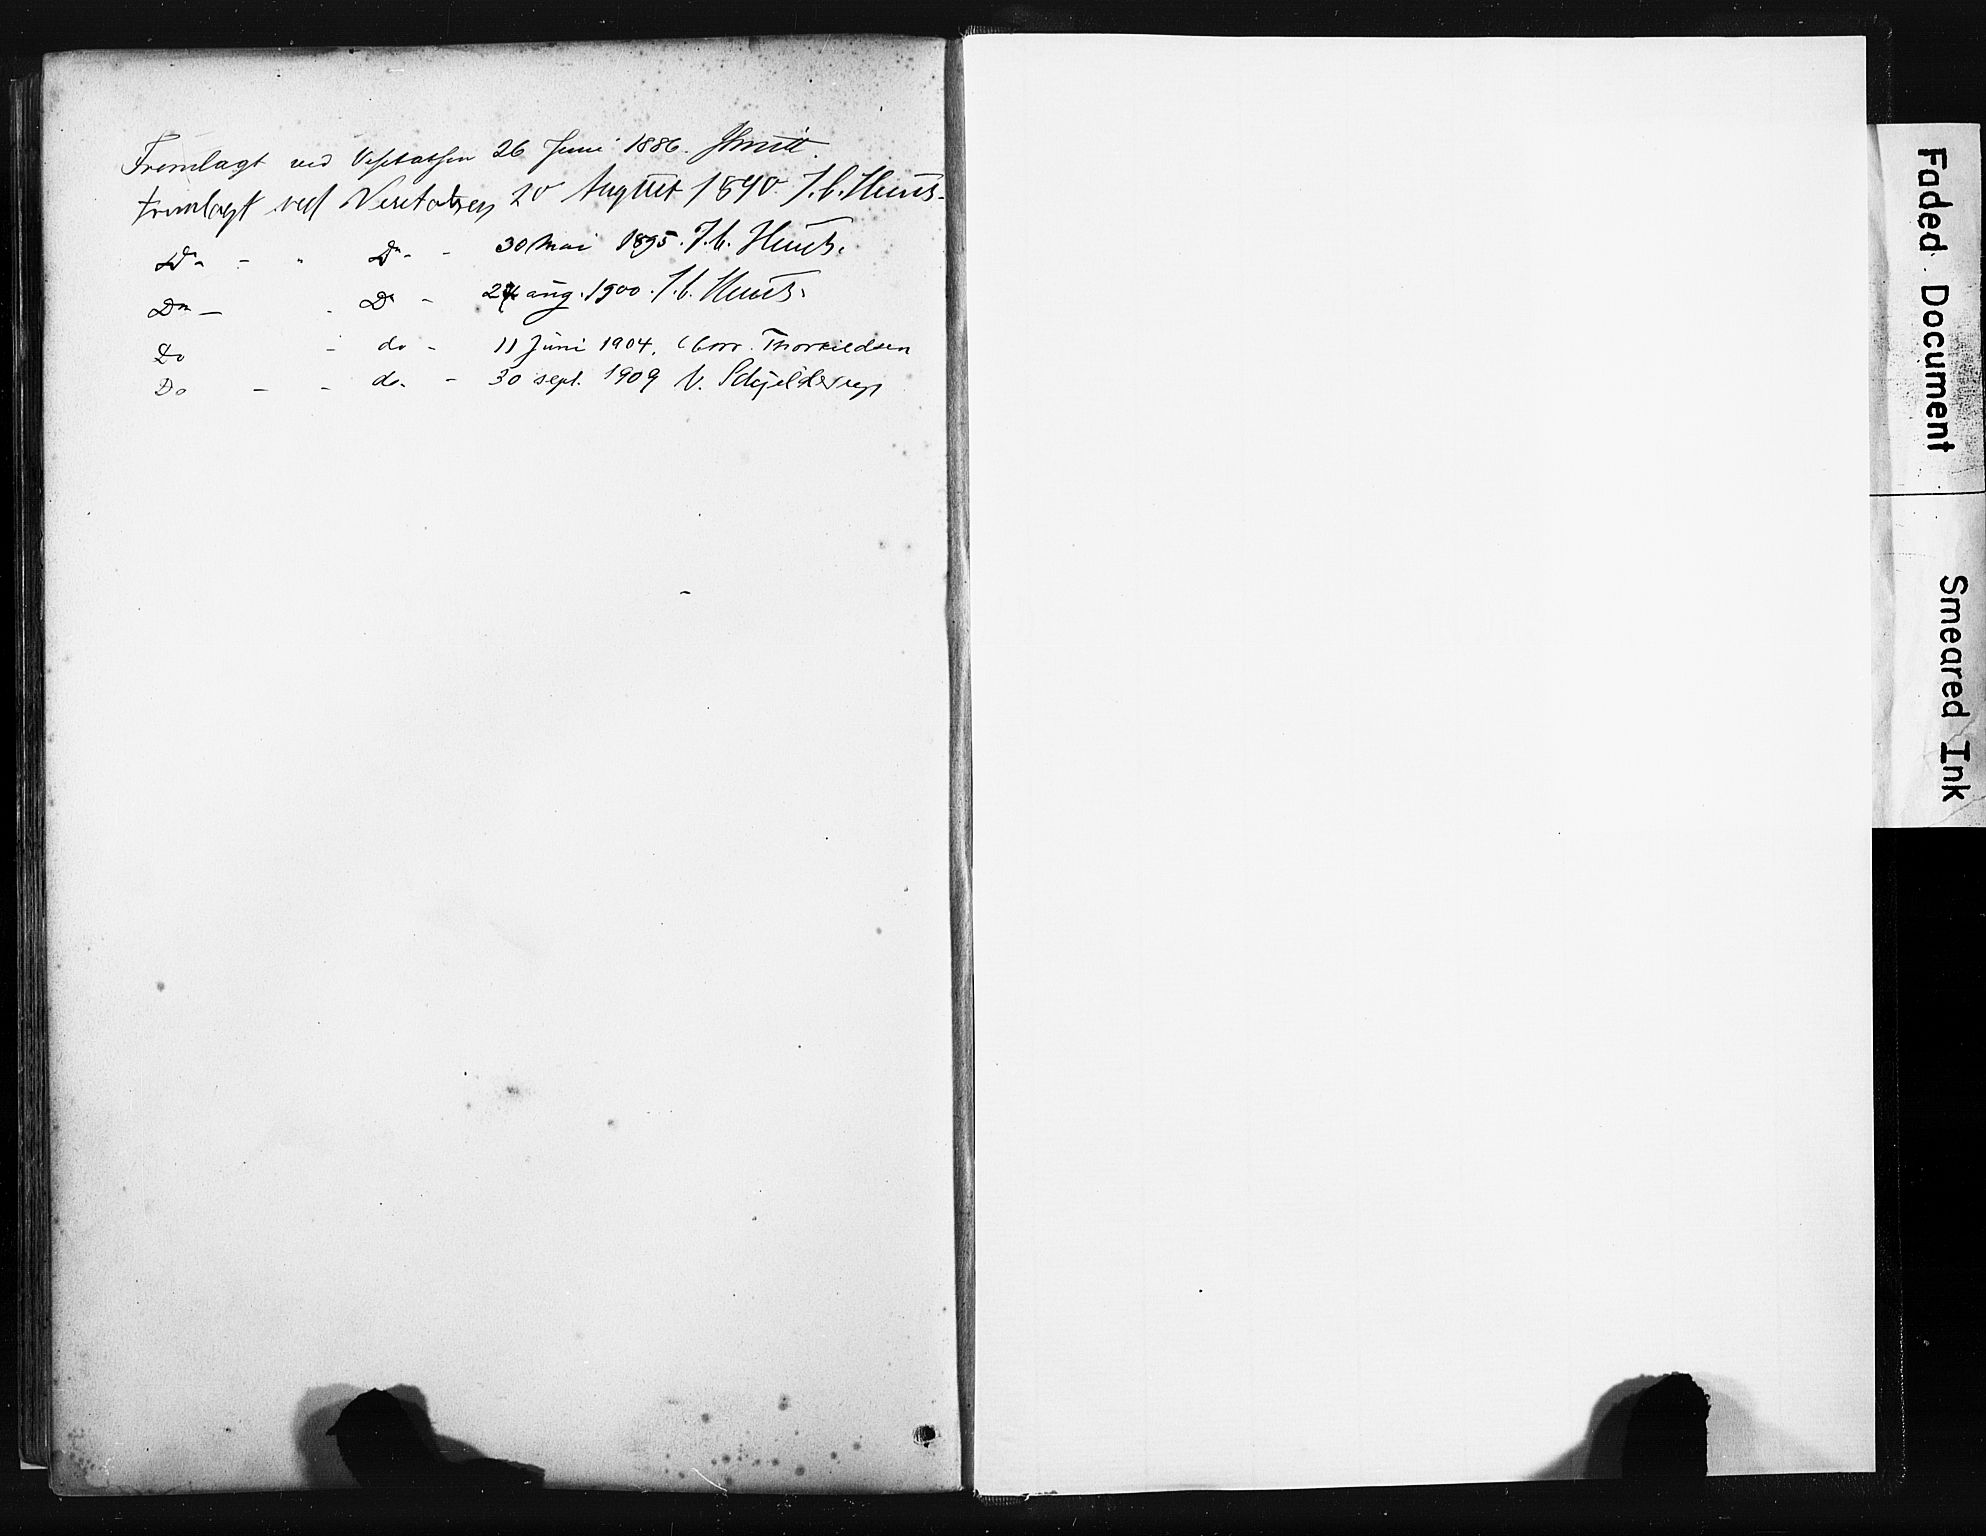 Fremlagt ved Visitatsen 26 Juni 1886. Smitt.
Fremlagt ved Visitatsen 20 August 1890. J. C. Heuch.
Do - - Do - 30 Mai 1895. J. C. Heuch.
Do - - Do - aug. 1900. J. C. Heuch.
Do - do - 11 Juni 1904. Thorkildsen
Do - - do. - 30 sept. 1909 Schjelderup
Faded Document
Smeared Ink